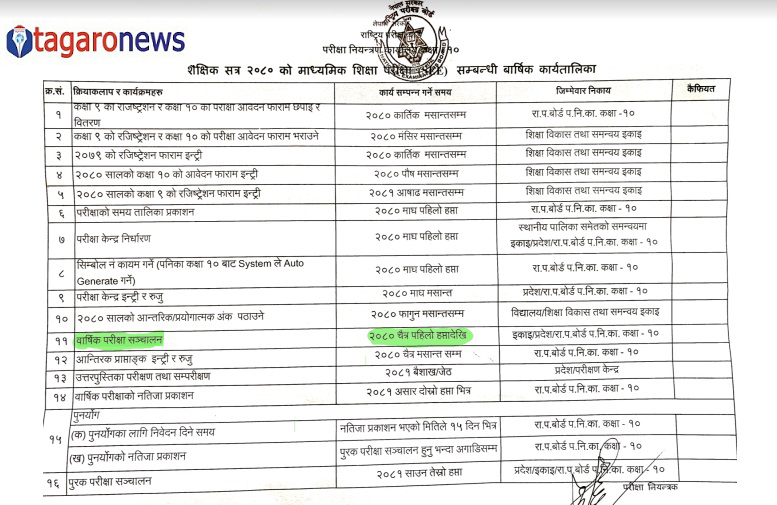 tagaronews
नेपाल सरकार
राष्ट्रिय परीक्षा बोर्ड
परीक्षा नियन्त्रण कार्यालय कक्षा १०
शैक्षिक सत्र २०८० को माध्यमिक शिक्षा परीक्षा (SEE) सम्बन्धी बार्षिक कार्यतालिका
क्र.सं. क्रियाकलाप र कार्यक्रमहरु कार्य सम्पन्न गर्ने समय जिम्मेवार निकाय कैफियत
१ कक्षा ९ को रजिष्ट्रेशन र कक्षा १० का परीक्षा आवेदन फाराम छपाइ र वितरण २०८० कार्तिक मसान्तसम्म रा.प.बोर्ड प.नि.का. कक्षा -१०
२ कक्षा ९ को रजिष्ट्रेशन र कक्षा १० को परीक्षा आवेदन फाराम भराउने २०८० मंसिर मसान्तसम्म शिक्षा विकास तथा समन्वय इकाइ
३ २०७९ को रजिष्ट्रेशन फाराम इन्ट्री २०८० कार्तिक मसान्तसम्म शिक्षा विकास तथा समन्वय इकाइ
४ २०८० सालको कक्षा १० को आवेदन फाराम इन्ट्री २०८० पौष मसान्तसम्म शिक्षा विकास तथा समन्वय इकाइ
५ २०८० सालको कक्षा ९ को रजिष्ट्रेशन फाराम इन्ट्री २०८१ आषाढ मसान्तसम्म शिक्षा विकास तथा समन्वय इकाइ
६ परीक्षाको समय तालिका प्रकाशन २०८० माघ पहिलो हप्ता रा.प.बोर्ड प.नि.का. कक्षा - १०
७ परीक्षा केन्द्र निर्धारण २०८० माघ पहिलो हप्ता स्थानीय पालिका समेतको समन्वयमा
इकाइ/प्रदेश/रा.प.बोर्ड प.नि.का. कक्षा - १०
८ सिम्बोल नं कायम गर्ने (पनिका कक्षा १० बाट System ले Auto
Generate गर्ने) २०८० माघ पहिलो हप्ता रा.प.बोर्ड प.नि.का. कक्षा - १०
९ परीक्षा केन्द्र इन्ट्री र रुजु २०८० माघ मसान्त प्रदेश/रा.प.बोर्ड प.नि.का. कक्षा - १०
१० २०८० सालको आन्तरिक/प्रयोगात्मक अंक पठाउने २०८० फागुन मसान्तसम्म विद्यालय/शिक्षा विकास तथा समन्वय इकाइ
११ वार्षिक परीक्षा सञ्चालन २०८० चैत्र पहिलो हप्तादेखि इकाइ/प्रदेश/रा.प.बोर्ड प.नि.का. कक्षा - १०
१२ आन्तिरक प्राप्ताङ्क इन्ट्री र रुजु २०८० चैत्र मसान्त सम्म रा.प.बोर्ड प.नि.का. कक्षा - १०
१३ उत्तरपुस्तिका परीक्षण तथा सम्परीक्षण २०८१ बैशाख/जेठ प्रदेश/परीक्षण केन्द्र
१४ वार्षिक परीक्षाको नतिजा प्रकाशन २०८१ असार दोस्रो हप्ता भित्र रा.प.बोर्ड प.नि.का. कक्षा - १०
पुनर्योग
१५ (क) पुनर्योगका लागि निवेदन दिने समय नतिजा प्रकाशन भएको मितिले १५ दिन भित्र रा.प.बोर्ड प.नि.का. कक्षा - १०
(ख) पुनर्योगको नतिजा प्रकाशन पुरक परीक्षा सञ्चालन हुनु भन्दा अगाडिसम्म रा.प.बोर्ड प.नि.का. कक्षा - १०
१६ पुरक परीक्षा सञ्चालन २०८१ साउन तेस्रो हप्ता प्रदेश/इकाइ/रा.प.बोर्ड प.नि.का. कक्षा - १०
परीक्षा नियन्त्रक